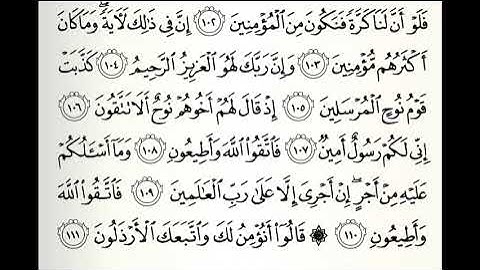 فَلَوۡ أَنَّ لَنَا كَرَّةٗ فَنَكُونَ مِنَ ٱلۡمُؤۡمِنِينَ ١٠٢ إِنَّ فِي ذَٰلِكَ لَأٓيَةٗۖ وَمَا كَانَ
أَكۡثَرُهُم مُّؤۡمِنِينَ ١٠٣ وَإِنَّ رَبَّكَ لَهُوَ ٱلۡعَزِيزُ ٱلرَّحِيمُ ١٠٤ كَذَّبَتۡ
قَوۡمُ نُوحٍ ٱلۡمُرۡسَلِينَ ١٠٥ إِذۡ قَالَ لَهُمۡ أَخُوهُمۡ نُوحٌ أَلَا تَتَّقُونَ ١٠٦
إِنِّي لَكُمۡ رَسُولٌ أَمِينٞ ١٠٧ فَٱتَّقُواْ ٱللَّهَ وَأَطِيعُونِ ١٠٨ وَمَآ أَسۡـَٔلُكُمۡ
عَلَيۡهِ مِنۡ أَجۡرٍۖ إِنۡ أَجۡرِيَ إِلَّا عَلَىٰ رَبِّ ٱلۡعَٰلَمِينَ ١٠٩ فَٱتَّقُواْ ٱللَّهَ
وَأَطِيعُونِ ١١٠ ۞ قَالُوٓاْ أَنُؤۡمِنُ لَكَ وَٱتَّبَعَكَ ٱلۡأَرۡذَلُونَ ١١١